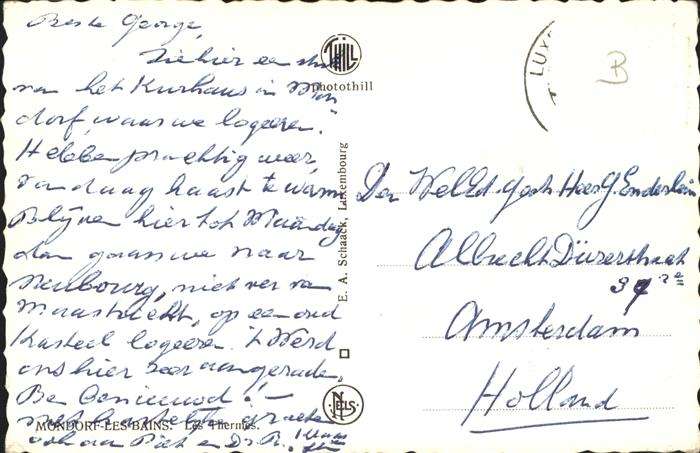 Beste George,
Ziehier een stuk
van het Kurhaus in Mon
dorf, waar we logeeren.
Hebben prachtig weer,
vandaag haast te warm
Blijven hier tot Maandag
dan gaan we naar
Neubourg, niet ver van
Maastricht, op een oud
Kasteel logeeren. 't Werd
ons hier zeer aangeraden.
Ben benieuwd!
met hartelijke groeten
ook van Piet en Dr. R.
MONDORF-LES-BAINS. Les Thermes.
THILL
Photothill
E. A. Schaack, Luxembourg
NELS
LUX
Den WelEd Heer G Enderlein
Albrecht Dürerstraat
37
Amsterdam
Holland